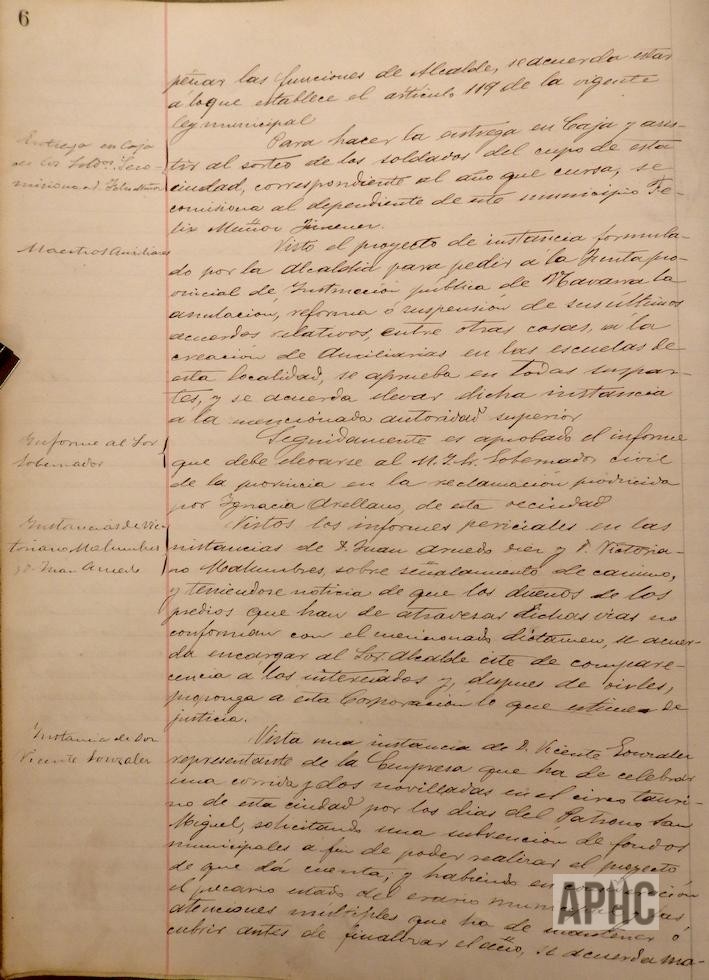 6
peñar las funciones de Alcalde, se acuerda estar
á lo que establece el artículo 119 de la vigente
ley municipal
Entrega en Caja
de los Sold.os Se co-
misiona á Felix Muñoz
Para hacer la entrega en Caja y asis-
tir al sorteo de los soldados del cupo de esta
ciudad, correspondiente al año que cursa, se
comisiona al dependiente de este municipio Fe-
lix Muñoz Jimenez.
Maestros Auxiliares
Visto el proyecto de instancia formula-
do por la Alcaldía para pedir á la Junta pro-
vincial de Instrucción pública de Navarra la
anulación, reforma ó suspensión de sus últimos
acuerdos relativos, entre otras cosas, á la
creación de Auxiliarias en las escuelas de
esta localidad, se aprueba en todas sus par-
tes, y se acuerda elevar dicha instancia
á la mencionada autoridad superior
Informe al Sor
Gobernador
Seguidamente es aprobado el informe
que debe elevarse al M. I. Sr. Gobernador civil
de la provincia en la reclamación producida
por Ignacia Arellano, de esta vecindad
Instancias de Vic-
toriano Malumbres
y D. Juan Arnedo
Vistos los informes periciales en las
instancias de D. Juan Arnedo Diez y D. Victoria-
no Malumbres, sobre señalamiento de camino,
y teniendose noticia de que los dueños de los
predios que han de atravesar dichas vias no
conforman con el mencionado dictamen, se acuer-
da encargar al Sor. Alcalde cite de compare-
cencia á los interesados y, despues de oirles,
proponga á esta Corporación lo que estime de
justicia.
Instancia de Don
Vicente Gonzalez
Vista una instancia de D. Vicente Gonzalez
representante de la Empresa que ha de celebrar
una corrida y dos novilladas en el circo tauri-
no de esta ciudad por los dias del Patrono San
Miguel, solicitando una subvención de fondos
municipales á fin de poder realizar el proyecto
de que dá cuenta; y habiendo en consideración
el precario estado del erario municipal
atenciones múltiples que ha de mantener ó
cubrir antes de finalizar el año, se acuerda ma-
APHC